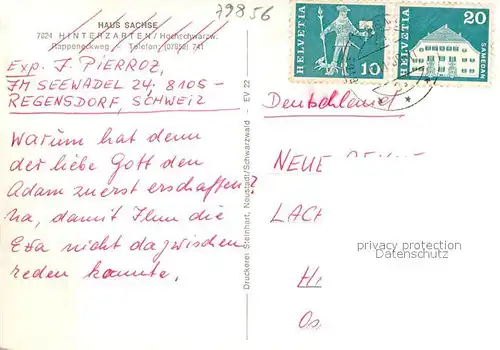 79856
HAUS SACHSE
7824 HINTERZARTEN / Hochschwarzw.
Rappeneckweg - Telefon: (07652) 741
Exp. J. PIERROZ,
IM SEEWADEL 24. 8105 -
REGENSDORF, SCHWEIZ
Warum hat denn
der liebe Gott den
Adam zuerst erschaffen?
na, damit Ihm die
Eva nicht dazwischen
reden konnte.
Druckerei Steinhart, Neustadt/Schwarzwald - EV 22
HELVETIA
10
HELVETIA
20
SAMEDAN
Deutschland
NEUE
LACH
privacy protection
Datenschutz